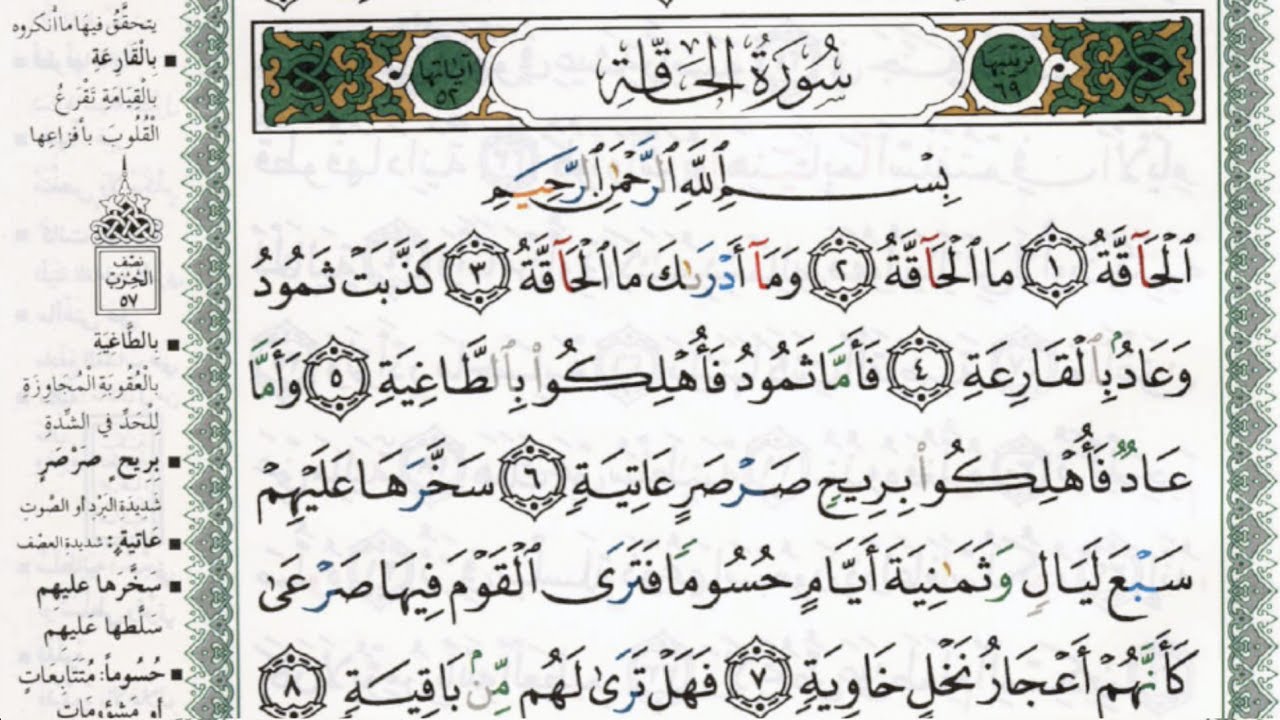 سُورَةُ الْحَاقَّةِ
ترتيبها ٦٩
آياتها ٥٢
بِسْمِ اللَّهِ الرَّحْمَٰنِ الرَّحِيمِ
ٱلْحَآقَّةُ ١ مَا ٱلْحَآقَّةُ ٢ وَمَآ أَدْرَىٰكَ مَا ٱلْحَآقَّةُ ٣ كَذَّبَتْ ثَمُودُ
وَعَادٌۢ بِٱلْقَارِعَةِ ٤ فَأَمَّا ثَمُودُ فَأُهْلِكُوا۟ بِٱلطَّاغِيَةِ ٥ وَأَمَّا
عَادٌ فَأُهْلِكُوا۟ بِرِيحٍ صَرْصَرٍ عَاتِيَةٍ ٦ سَخَّرَهَا عَلَيْهِمْ
سَبْعَ لَيَالٍ وَثَمَٰنِيَةَ أَيَّامٍ حُسُومًا فَتَرَى ٱلْقَوْمَ فِيهَا صَرْعَىٰ
كَأَنَّهُمْ أَعْجَازُ نَخْلٍ خَاوِيَةٍ ٧ فَهَلْ تَرَىٰ لَهُم مِّنۢ بَاقِيَةٍ ٨
يتحقَّقُ فيها ما أنكروه
بِالْقَارِعَةِ
بِالْقِيَامَةِ تَقْرَعُ
الْقُلُوبَ بأفزاعِها
نصف
الحزب
٥٧
بِالطَّاغِيَة
بِالْعُقُوبَةِ الْمُجَاوِزَةِ
لِلْحَدِّ في الشِّدةِ
بِرِيحٍ صَرْصَرٍ
شديدةِ البَرَدِ أو الصَّوتِ
عَاتِيَةٍ: شديدة العصْف
سَخَّرَها عليهم
سَلَّطها عَليهم
حُسُوماً: مُتَتابعاتٍ
أو مَشْؤوماتٍ